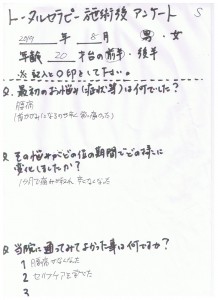 トータルセラピー施術後 アンケート S
2019 年 8 月 男・女
年齢 20 才台の前半・後半
※記入と○印をして下さい。
Q. 最初のお悩み(症状等)は何でしたか?
腰痛
Q. その悩みがどの位の期間でどの様に
変化しましたか?
1ヶ月で痛みが
なくなった
Q. 当院に通ってみてよかった事は何ですか?
1 腰痛がなくなった
2 セルフケアを
3